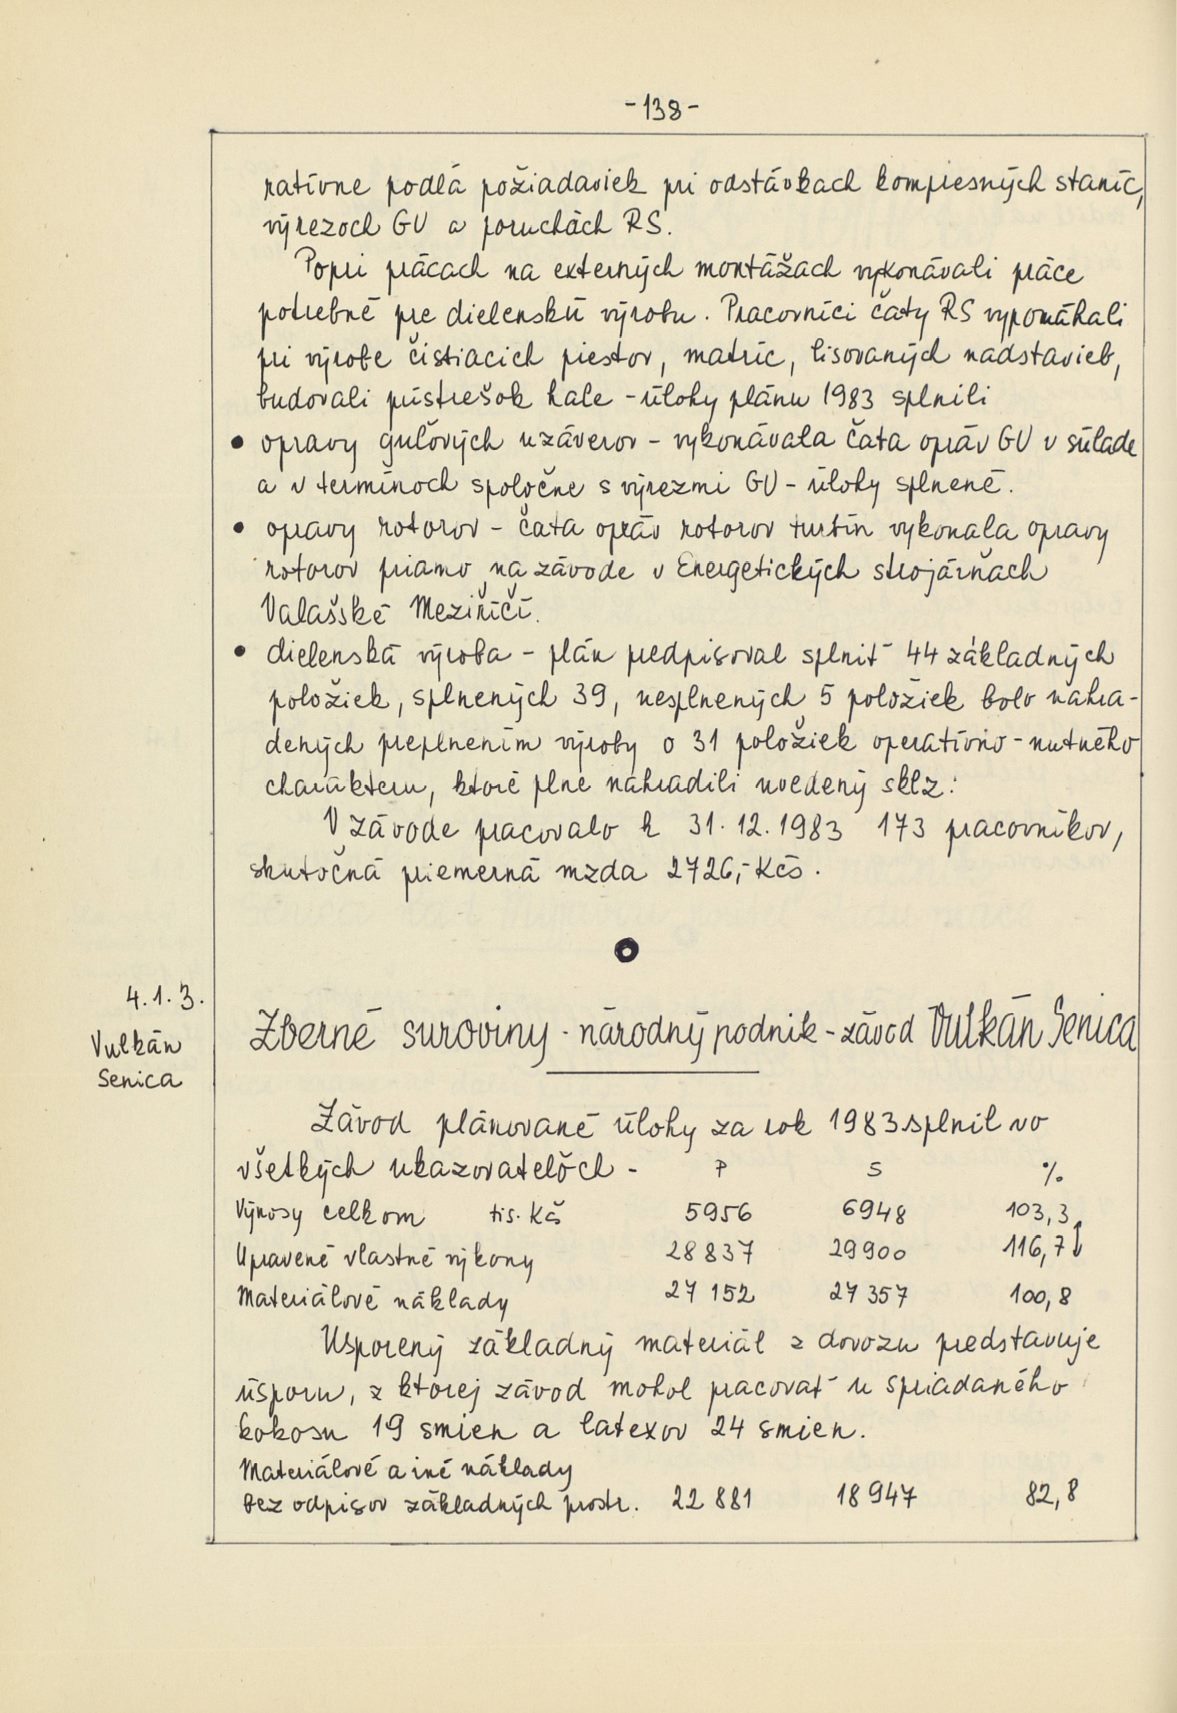 -138-
ratívne podľa požiadaviek pri odstávkach kompresných staníc,
výrezoch GU a poruchách RS.
Popri prácach na externých montážach vykonávali práce
potrebné pre dielenskú výrobu. Pracovníci čaty RS vypomáhali
pri výrobe čistiacich piestov, matríc, lisovaných nadstavieb,
budovali prístrešok hale - úlohy plánu 1983 splnili
• opravy guľových uzáverov - vykonávala čata opráv GU v súlade
a v termínoch spoločne s výrezmi GU - úlohy splnené.
• opravy rotorov - čata opráv rotorov turbín vykonala opravy
rotorov priamo na závode v Energetických strojárňach
Valašské Meziříčí.
• dielenská výroba - plán predpisoval splniť 44 základných
položiek, splnených 39, nesplnených 5 položiek bolo nahra-
dených preplnením výroby o 31 položiek operatívno - nutného
charakteru, ktoré plne nahradili uvedený sklz:
V závode pracovalo k 31.12.1983 173 pracovníkov,
skutočná priemerná mzda 2726,- Kčs.
4.1.3.
Vulkán
Senica
Zberné suroviny - národný podnik - závod Vulkán Senica
Závod plánované úlohy za rok 1983 splnil vo
všetkých ukazovateľoch - P S %
Výnosy celkom tis. Kč 5956 6948 103,3
Upravené vlastné výkony 28 837 29900 116,7
Materiálové náklady 27 152 27 357 100,8
Usporený základný materiál z dovozu predstavuje
úsporu, z ktorej závod mohol pracovať u spriadaného
kokosu 19 smien a latexov 24 smien.
Materiálové a iné náklady
bez odpisov základných prostr. 22 881 18 947 82,8